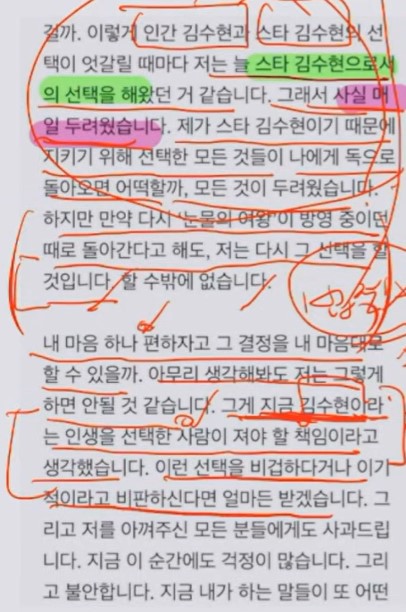 걸까. 이렇게 인간 김수현과 스타 김수현의 선
택이 엇갈릴 때마다 저는 늘 스타 김수현으로서
의 선택을 해왔던 거 같습니다. 그래서 사실 매
일 두려웠습니다. 제가 스타 김수현이기 때문에
지키기 위해 선택한 모든 것들이 나에게 독으로
돌아오면 어떡할까, 모든 것이 두려웠습니다.
하지만 만약 다시 '눈물의 여왕'이 방영 중이던
때로 돌아간다고 해도, 저는 다시 그 선택을 할
것입니다. 할 수밖에 없습니다.
내 마음 하나 편하자고 그 결정을 내 마음대로
할 수 있을까. 아무리 생각해봐도 저는 그렇게
하면 안될 것 같습니다. 그게 지금 김수현이라
는 인생을 선택한 사람이 져야 할 책임이라고
생각했습니다. 이런 선택을 비겁하다거나 이기
적이라고 비판하신다면 얼마든 받겠습니다. 그
리고 저를 아껴주신 모든 분들에게도 사과드립
니다. 지금 이 순간에도 걱정이 많습니다. 그리
고 불안합니다. 지금 내가 하는 말들이 또 어떤